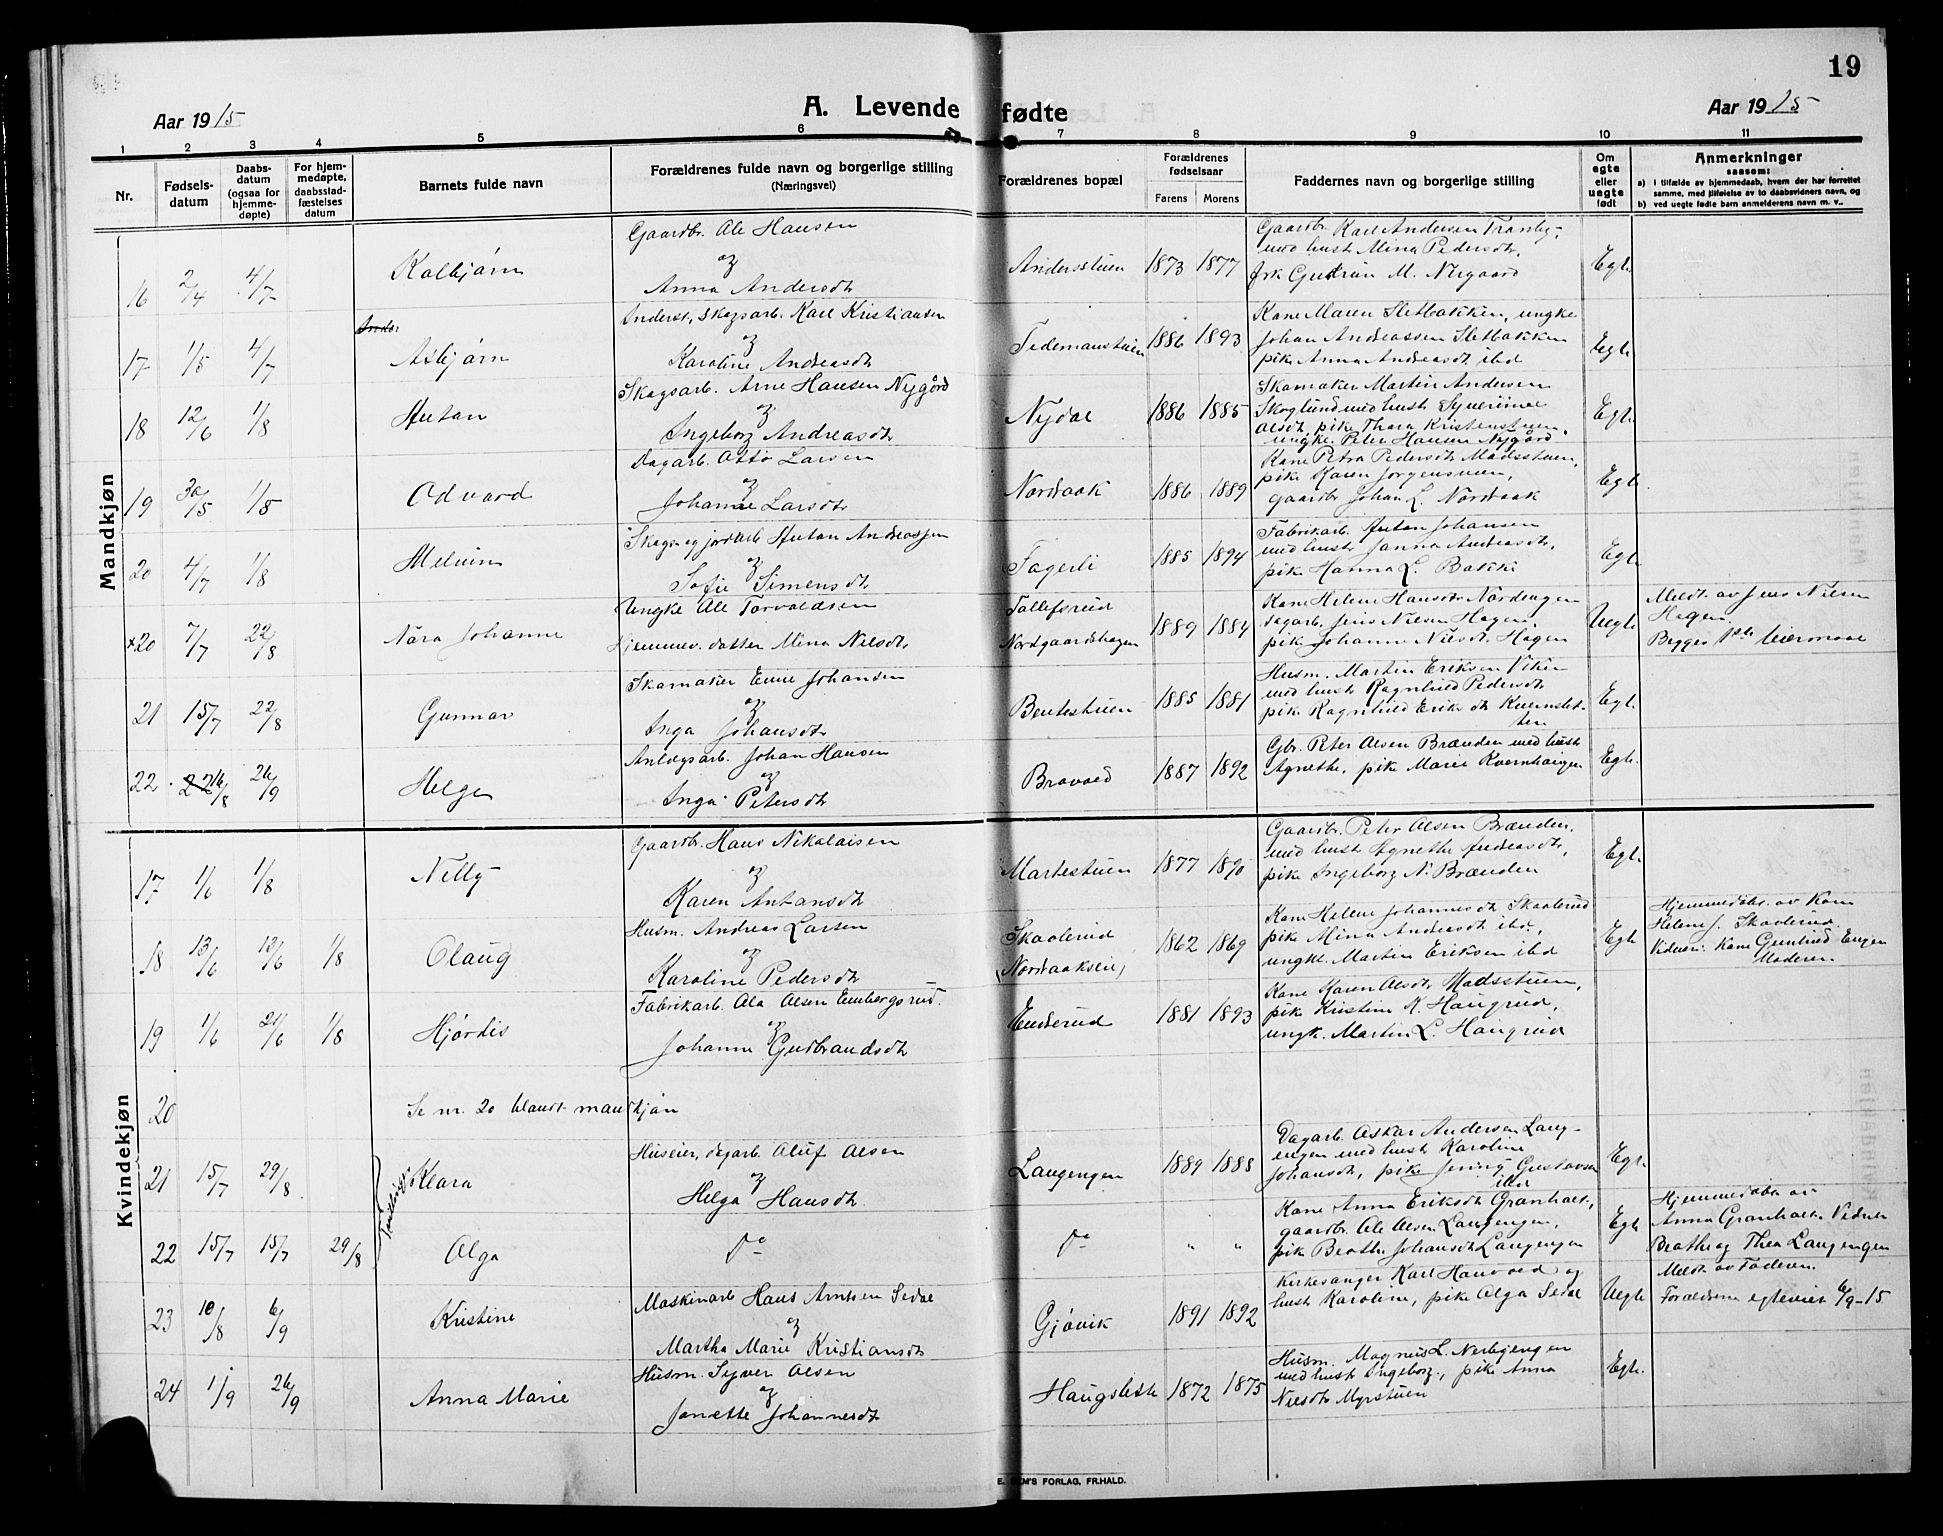 19
Aar 1915
A. Levende fødte
Aar 1915
1 2 3 4 5 6 7 8 9 10 11
Nr.
Fødsels-
datum
Daabs-
datum
(ogsaa for
hjemme-
døpte)
For hjem-
medøpte,
daabsstad-
fæstelses
datum
Barnets fulde navn
Forældrenes fulde navn og borgerlige stilling
(Næringsvei)
Forældrenes bopæl
Forældrenes
fødselsaar
Farens Morens
Faddernes navn og borgerlige stilling
Om
egte
eller
uegte
født
Anmerkninger
saasom:
a) i tilfælde av hjemmedaab, hvem der har forrettet
samme, med tilføielse av to daabsvidners navn, og
b) ved uegte fødte barn anmelderens navn m. v..
Mandkjøn
16 2/4 4/7 Kolbjørn
Gaardbr. Ole Hansen
og
Anna Andersdt.
Andersstuen 1873 1877
Gaardbr. Karl Andersen Tranby,
med hust. Mina Pedersdt.
frk Gudrun M. Nygaard
Egt.
17 1/5 4/7 Asbjørn
Inderst, skogsarb. Karl Kristiansen
og
Karoline Andreasdt.
Tedemanstuen 1886 1893
Kone Maren Sletbakken, ungke
Johan Andreassen Sletbakken
pike Anna Andreasdt ibd
Egt.
18 12/6 1/8 Autan
Skogsarb. Arne Hansen Nygård
og
Ingeborg Andreasdt
Nydal 1886 1885
Skomaker Martin Andersen
Skoglund med hust
Olsdt, pike Thora Kristenstuen,
ungke. Peter Hansen Nygård
Egt.
19 30/5 1/8 Odvard
Dagarb. Otto Larsen
og
Johanne Larsdt.
Nordaak 1886 1889
Kone Petra Pedersdt Madsstuen,
pike Karen Jørgensveen,
gaardbr Johan L. Nordaak
Egt.
20 4/7 1/8 Melvin
Skogs og jordarb Anton Andreassen
og
Sofie Simensdt.
Fagerli 1885 1894
Fabrikarb. Anton Johansen
med hust Janna Andreasdt,
pike Hanna L. Bakke
Egt.
×20 7/7 22/8 Nora Johanne
Ungke Ole Torvaldsen
Hjemmev. datter Mina Nilsdt.
Tollefsrud
Nordgaardshagen
1889 1884
Kone Helene Hansdt Nordengen
dagarb. Jens Nilsen Hagen,
pike Johanne Nilsdt. Hagen
Uegt.
Meldt av Jens Nilsen
Hagen.
Begges 1ste leiermaal
21 15/7 22/8 Gunnar
Skomaker Emil Johansen
og
Inga Johansdt.
Bentestuen 1885 1881
Husm. Martin Eriksen Viken
med hust Ragnhild Pedersdt
pike Ragnhild Eriksdt Kvernslet-
ten
Egt.
22 16/8 26/9 Helge
Anlægsarb. Johan Hansen
og
Inga Petersdt
Bravold 1887 1892
Gbr. Peter Olsen Brænden med hust
Agnethe, pike Marie Kvernhaugen
Egt.
Kvindekjøn
17 1/6 1/8 Nelly
Gaardbr. Hans Nikolaisen
og
Karen Antonsdt
Martestuen 1877 1890
Gaardbr. Peter Olsen Brænden,
med hust Agnethe Andreasdt,
pike Ingeborg N. Brænden
Egt.
18 13/6 13/6 1/8 Olaug
Husm. Andreas Larsen
og
Karoline Pedersdt
Skaalerud
(Nordaakseie)
1862 1869
Kone Helene Johannesdt Skaalerud
pike Mina Andreasdt ibd,
ungk. Martin Eriksen ibd
Egt
Hjemmedøbt av Kone
Helene J. Skaalerud.
Vidner: Kone Gunhild Engen
Moderen
19 1/6 21/6 1/8 Hjørdis
Fabrikarb. Ola Olsen Embergsrud.
og
Johanne Gudbrandsdt
Enderud 1881 1893
Kone Karen Olsdt Madsstuen,
pike Kristine K. Haugrud,
ungk. Martin L. Haugrud
20 Se nr. 20 blandt mandkjøn
21 15/7 29/8 Tvillinger Klara
Huseier, dagarb Oluf Olsen
og
Helga Hansdt.
Langengen 1889 1888
Dagarb. Oskar Andersen Lang-
engen med hust Karoline
Johansdt, pike Jenny Gustavsen
ibd
Egt.
22 15/7 15/7 29/8 Olga
Do
Do " "
Kone Anna Eriksdt Granholt,
gaardbr. Ole Olsen Langengen,
pik Beathe Johansdt Langengen
Egt
Hjemmedøbt av
Anna Granholt. Vidner
Beathe og Thea Langengen
23 10/8 6/9 Kristine
Maskinarb Hans Arntsen Sedal
og
Martha Marie Kristiansdt
Gjøvik 1891 1892
Kirkesanger Karl Hauvold og
hust Karoline, pike Olga Sedal
Uegte
Meldt av Faderen.
Forældrene egteviet 6/9-15
24 1/9 26/9 Anna Marie
Husm. Syver Olsen
og
Janette Johannesdt
Haugslette 1872 1875
Husm. Magnus L. Nerbyengen
med hust Ingeborg, pike Anna
Nilsdt. Myrstuen
Egt.
FORLAG, FR.HALD.